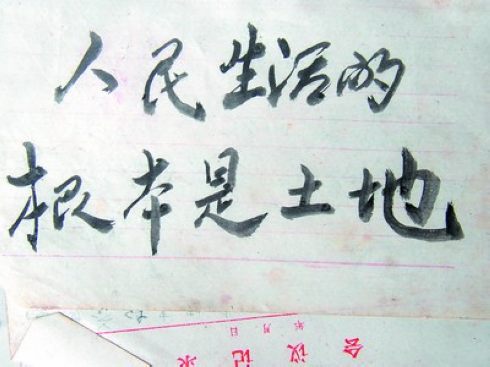 人民生活的
根本是土地
会议记录
年 月 日